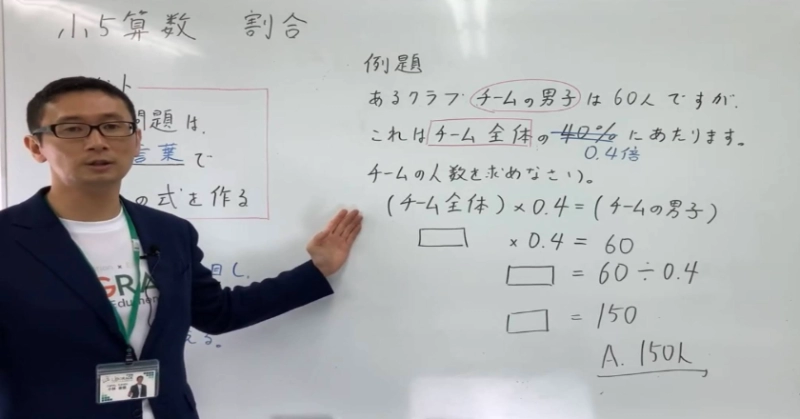 小5算数 割合
問題は、
言葉で
の式を作る
GRA
Edumen
例題
あるクラブチームの男子は60人ですが、
これはチーム全体の40%にあたります。
0.4倍
チームの人数を求めなさい。
(チーム全体)×0.4=(チームの男子)
□ ×0.4=60
□ =60÷0.4
□ =150
A. 150人